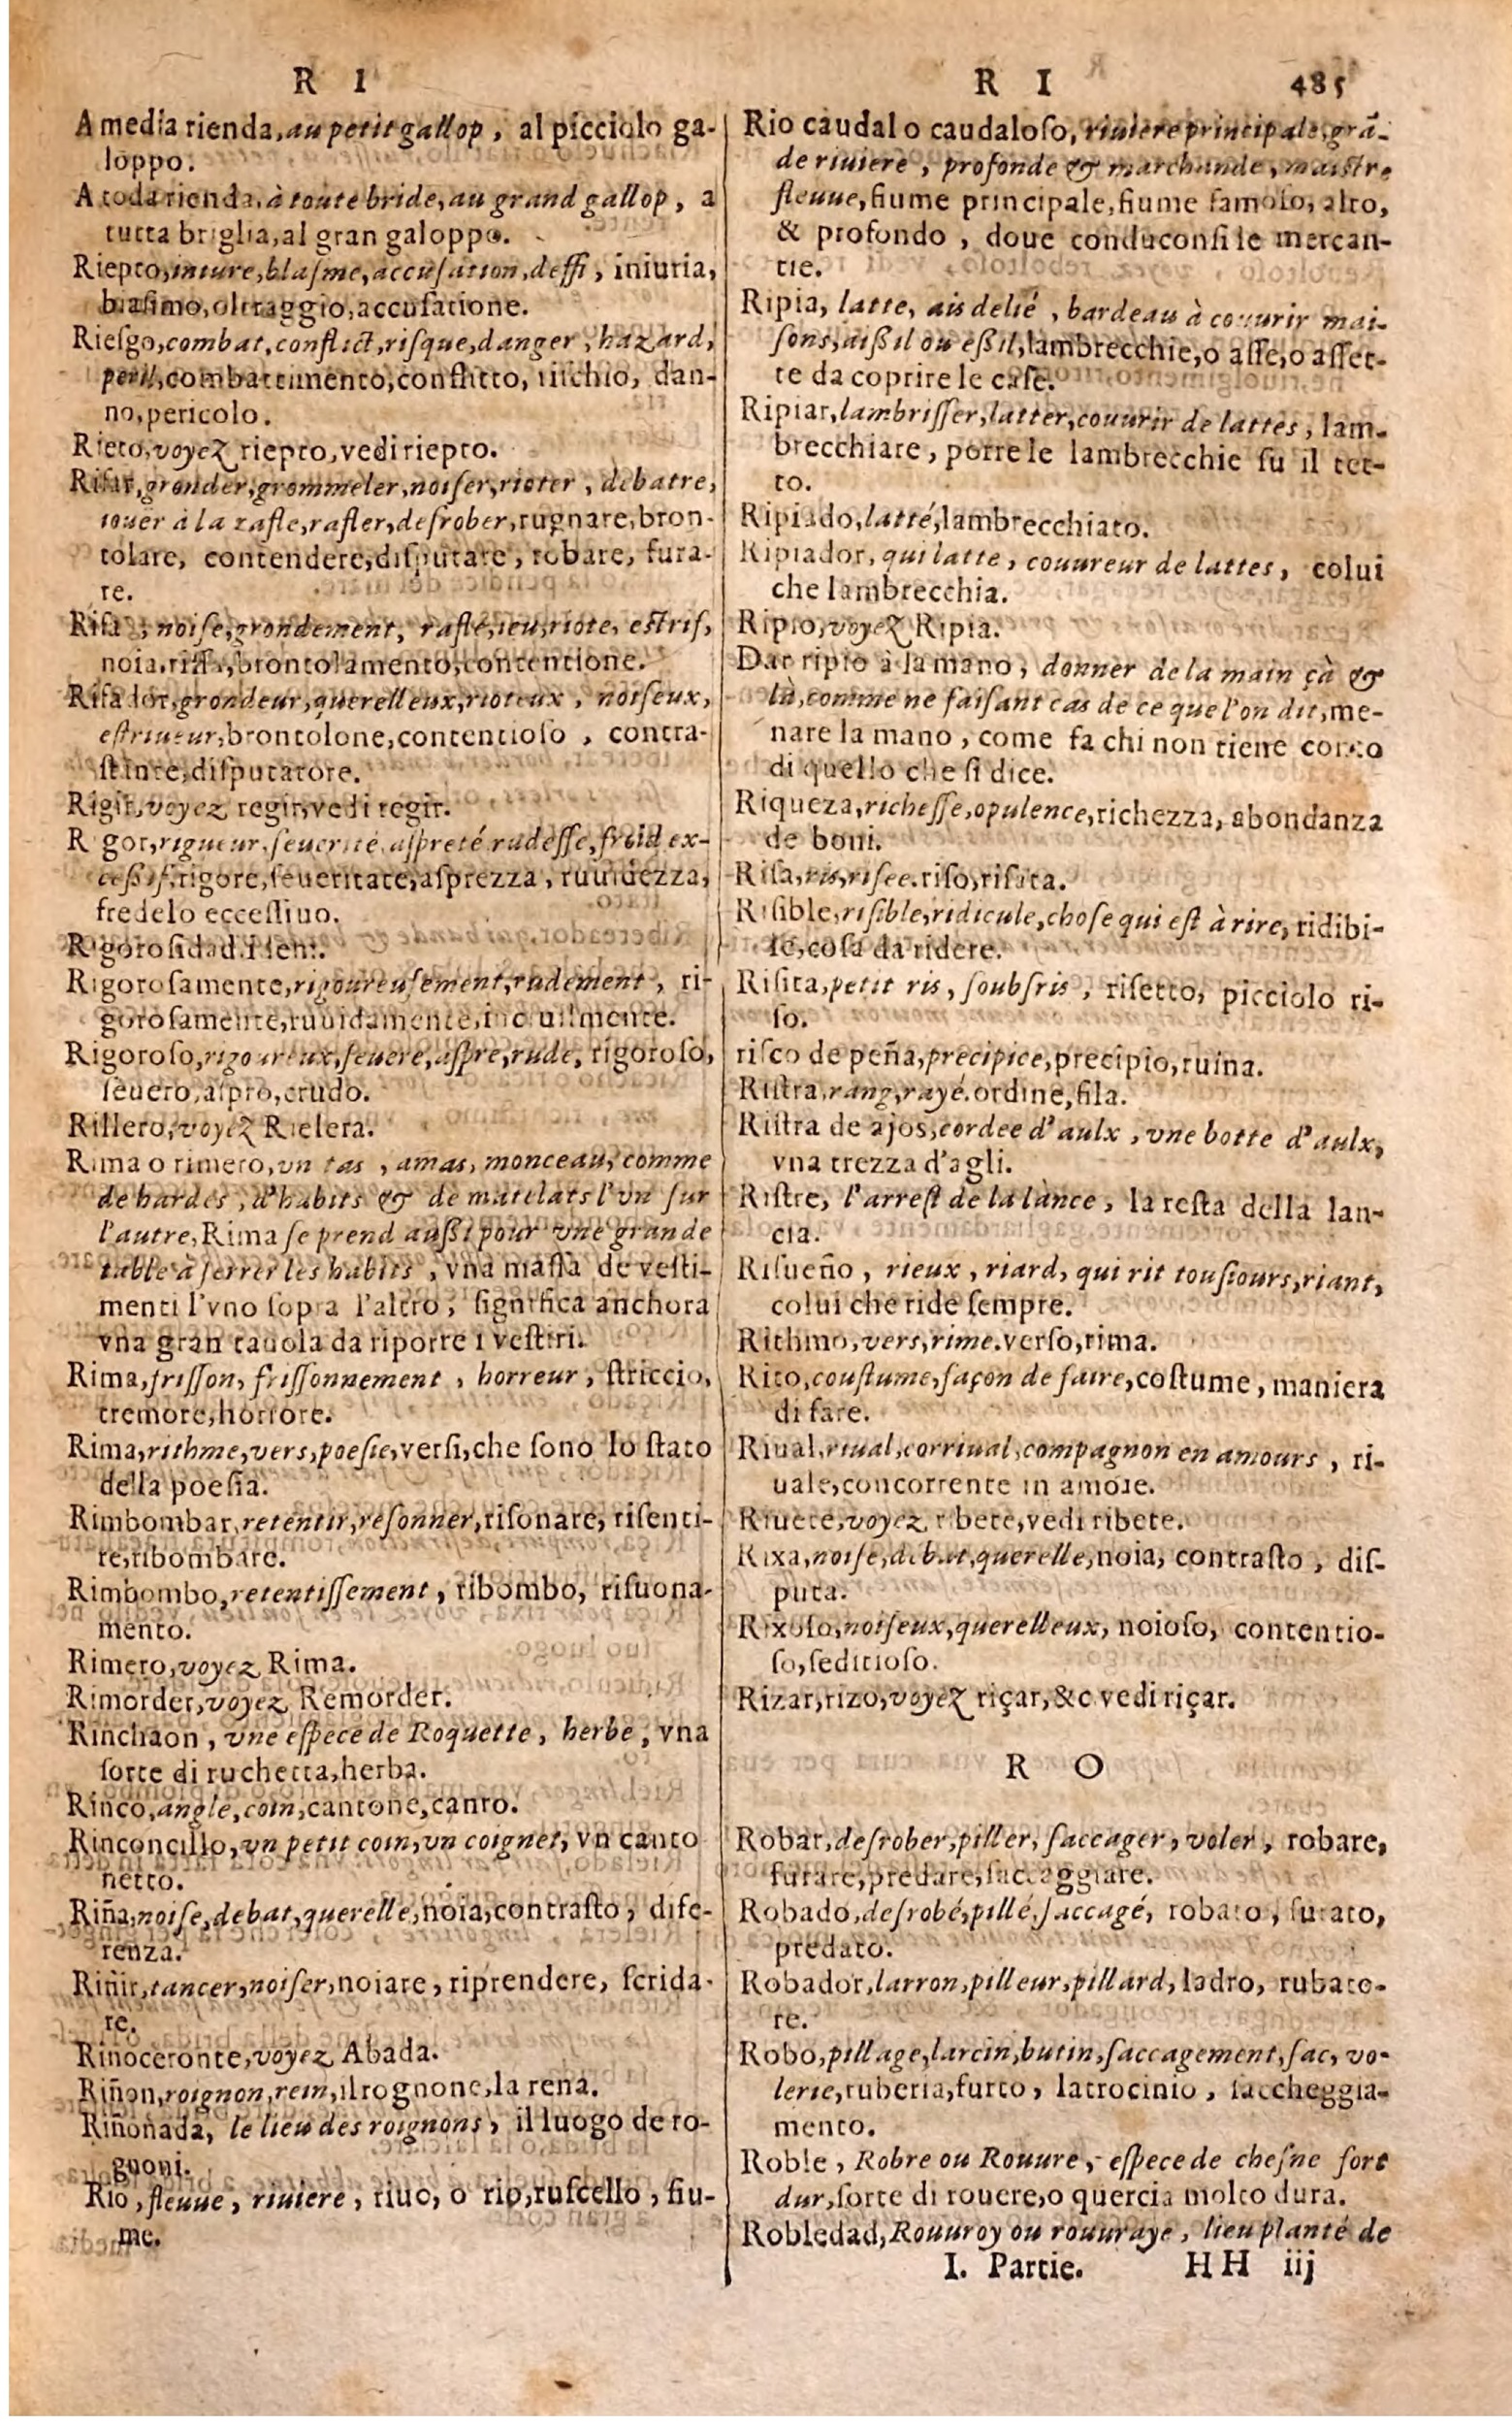 R I
A media rienda, au petit gallop, al picciolo ga-
loppo.
A toda rienda, à toute bride, au grand gallop, a
tutta briglia, al gran galoppo.
Riepto, iniure, blaſme, accuſation, deffi, iniuria,
biaſimo, oltraggio, accuſatione.
Rieſgo, combat, conflict, riſque, danger, hazard,
peril, combattimento, conflitto, riſchio, dan-
no, pericolo.
Rieto, voyez riepto, vedi riepto.
Rifar, gronder, grommeler, noiſer, rioter, debatre,
iouer à la rafle, rafler, deſrober, rugnare, bron-
tolare, contendere, diſputare, robare, fura-
re.
Rifa, noiſe, grondement, rafle, ieu, riote, eſtrif,
noia, riffa, brontolamento, contentione.
Rifador, grondeur, querelleux, rioteux, noiſeux,
eſtriueur, brontolone, contentioſo, contra-
ſtante, diſputatore.
Rigir, voyez regir, vedi regir.
R gor, rigueur, ſeuerité, aſpreté rudeſſe, froid ex-
ceßif, rigore, ſeueritate, aſprezza, ruuidezza,
fredelo ecceſſiuo.
Rigoroſidad. idem.
Rigoroſamente, rigoureuſement, rudement, ri-
goroſamente, ruuidamente, inciuilmente.
Rigoroſo, rigoureux, ſeuere, aſpre, rude, rigoroſo,
ſeuero, aſpro, crudo.
Rillero, voyez Rielera.
Rima o rimero, vn tas, amas, monceau, comme
de hardes, d'habits & de matelats l'vn ſur
l'autre, Rima ſe prend außi pour vne grande
table à ſerrer les habits, vna maſſa de veſti-
menti l'vno ſopra l'altro, ſignifica anchora
vna gran tauola da riporre i veſtiri.
Rima, friſſon, friſſonnement, horreur, ſtriccio,
tremore, horrore.
Rima, rithme, vers, poeſie, verſi, che ſono lo ſtato
della poeſia.
Rimbombar, retentir, reſonner, riſonare, riſenti-
re, ribombare.
Rimbombo, retentiſſement, ribombo, riſuona-
mento.
Rimero, voyez Rima.
Rimorder, voyez Remorder.
Rinchaon, vne eſpece de Roquette, herbe, vna
ſorte di ruchetta, herba.
Rinco, angle, coin, cantone, canto.
Rinconcillo, vn petit coin, vn coignet, vn canto
netto.
Riña, noiſe, debat, querelle, noia, contraſto, dife-
renza.
Riñir, tancer, noiſer, noiare, riprendere, ſcrida-
re.
Rinoceronte, voyez Abada.
Riñon, roignon, rein, il rognone, la rena.
Riñonada, le lieu des roignons, il luogo de ro-
gnoni.
Rio, fleuue, riuiere, riuo, o rio, ruſcello, fiu-
me.
R I 485
Rio caudal o caudaloſo, riuiere principale, grã-
de riuiere, profonde & marchande, maiſtre
fleuue, fiume principale, fiume famoſo, alto,
& profondo, doue conduconſi le mercan-
tie.
Ripia, latte, ais delié, bardeau à couurir mai-
ſons, aißil ou eßil, lambrecchie, o aſſe, o aſſet-
te da coprire le caſe.
Ripiar, lambriſſer, latter, couurir de lattes, lam-
brecchiare, porre le lambrecchie ſu il tet-
to.
Ripiado, latté, lambrecchiato.
Ripiador, qui latte, couureur de lattes, colui
che lambrecchia.
Ripio, voyez Ripia.
Dar ripio à la mano, donner de la main çà &
là, comme ne faiſant cas de ce que l'on dit, me-
nare la mano, come fa chi non tiene conto
di quello che ſi dice.
Riqueza, richeſſe, opulence, richezza, abondanza
de boni.
Riſa, ris, riſee. riſo, riſata.
Riſible, riſible, ridicule, choſe qui eſt à rire, ridibi-
le, coſa da ridere.
Riſita, petit ris, ſoubſris, riſetto, picciolo ri-
ſo.
riſco de peña, precipice, precipio, ruina.
Riſtra, rang, rayé. ordine, fila.
Riſtra de ajos, cordee d'aulx, vne botte d'aulx,
vna trezza d'agli.
Riſtre, l'arreſt de la lance, la reſta della lan-
cia.
Riſueño, rieux, riard, qui rit touſiours, riant,
colui che ride ſempre.
Rithmo, vers, rime. verſo, rima.
Rito, couſtume, façon de faire, coſtume, maniera
di fare.
Riual, riual, corriual, compagnon en amours, ri-
uale, concorrente in amore.
Riuete, voyez ribete, vedi ribete.
Rixa, noiſe, debat, querelle, noia, contraſto, diſ-
puta.
Rixoſo, noiſeux, querelleux, noioſo, contentio-
ſo, ſeditioſo.
Rizar, rizo, voyez riçar, &c vedi riçar.
R O
Robar, deſrober, piller, ſaccager, voler, robare,
furare, predare, ſaccaggiare.
Robado, deſrobé, pillé, ſaccagé, robato, furato,
predato.
Robador, larron, pilleur, pillard, ladro, rubato-
re.
Robo, pillage, larcin, butin, ſaccagement, ſac, vo-
lerie, ruberia, furto, latrocinio, ſaccheggia-
mento.
Roble, Robre ou Rouure, eſpece de cheſne fort
dur, ſorte di rouere, o quercia molto dura.
Robledad, Rouuroy ou rouuraye, lieu planté de
I. Partie. HH iij